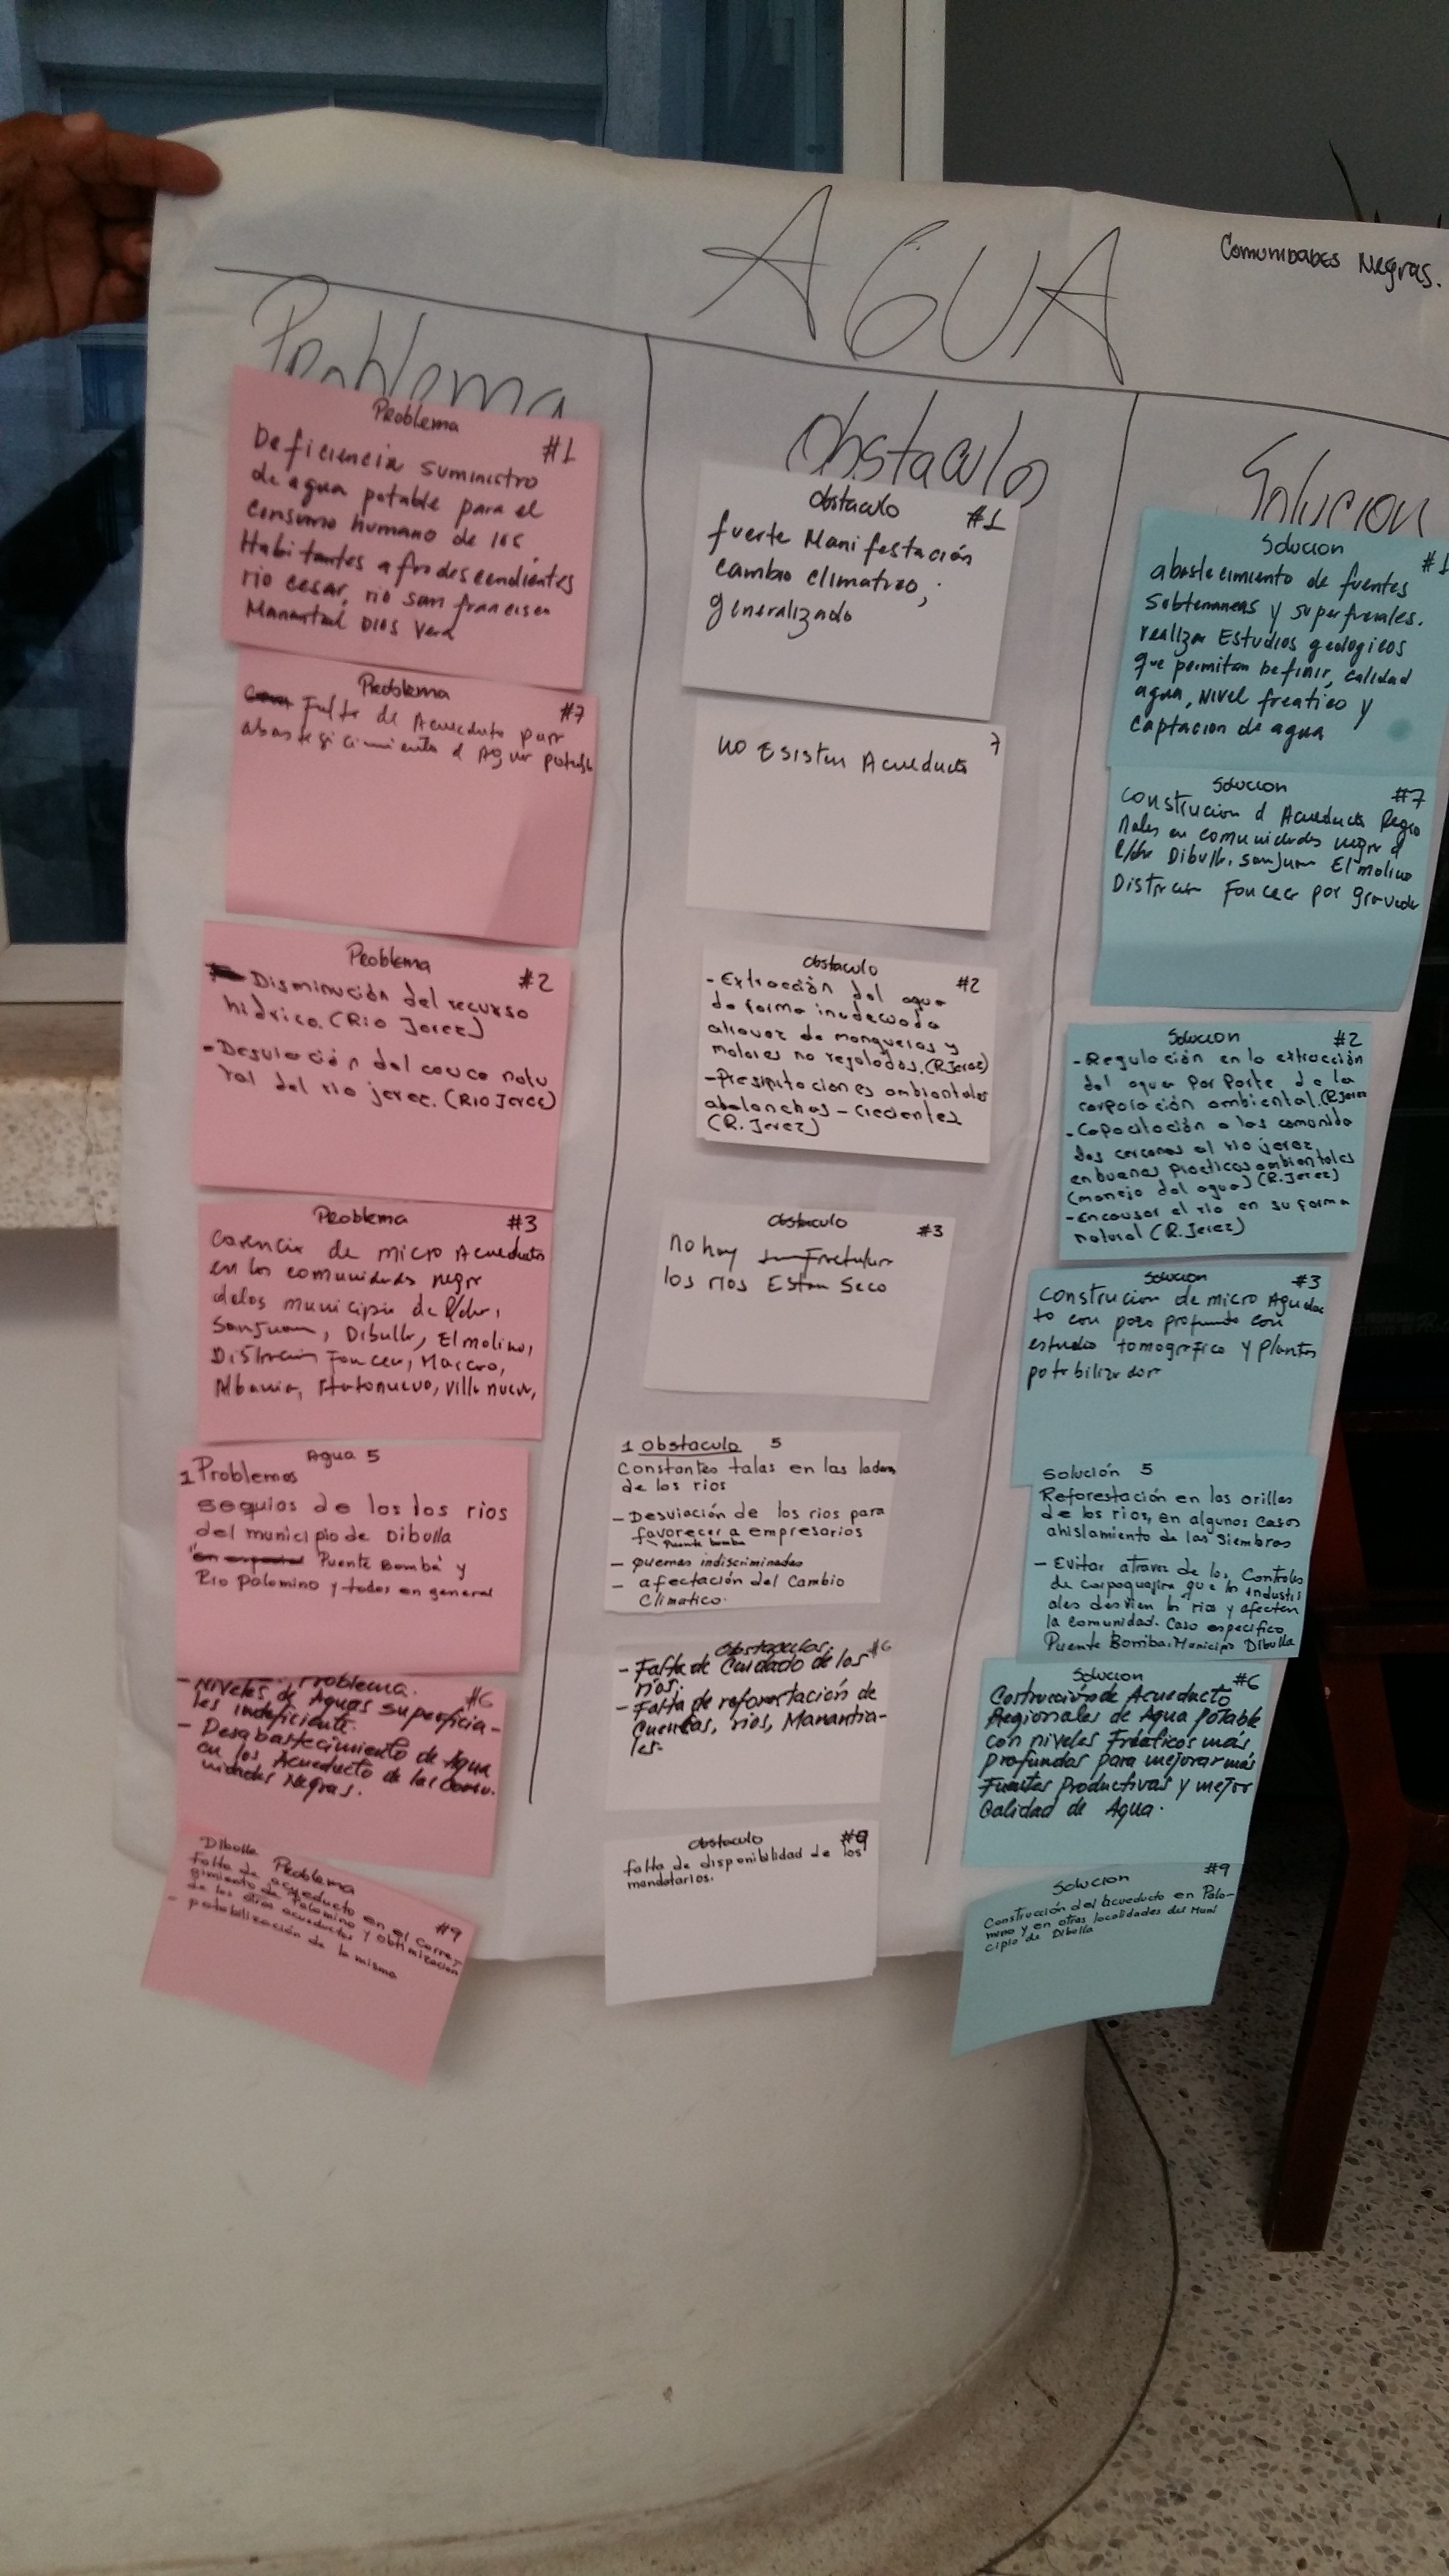 AGUA
Comunidades Negras.
Problema
Problema
#1
Deficiencia suministro
de agua potable para el
consumo humano de los
Habitantes afrodescendientes
rio cesar, rio san francisco
Manantial Dios Vera
Problema
#7
Falta de Acueducto para
de Agua potable
Problema
#2
- Disminución del recurso
hidrico. (Rio Jerez)
- Desviación del cauce natu
ral del rio jerez. (RIO Jerez)
Problema
#3
Carencia de micro Acueducto
en los comunidades negra
delos municipio de
SanJuan, Dibulla, El molino,
Distracion Foncec,
Albania, Hatonuevo, villa nueva,
Agua 5
1 Problemas
sequias de los los rios
del municipio de Dibulla
Puente Bomba y
Rio Palomino y todos en general
Problema.
#6
- Niveles de Aguas superficia-
les indeficiente.
- Desabastecimiento de Agua
en los Acueducto de las Comu-
nidades Negras.
Dibulla Problema
#9
Falta de acueducto en el corre-
gimiento de Palomino y obtimización
de los otros acueductos
- potabilización de la misma
Obstaculos
Obstaculo
#1
fuerte Manifestación
cambio climatico;
generalizado
7
no Esisten Acueducto
obstaculo
#2
- Extracción del agua
de forma inadecuada
atravez de mangueras y
motores no regulados. (R. Jerez)
- Presipitaciones ambientales
abalanchas - crecientes
(R. Jerez)
Obstaculo
#3
no hay
los rios Estan Seco
1 Obstaculo 5
Constantes talas en las laderas
de los rios
- Desviación de los rios para
favorecer a empresarios
Puente bomba
- quemas indiscriminadas
- afectación del Cambio
Climatico.
Obstaculos.
#6
- Falta de Cuidado de los
rios.
- Falta de reforestación de
Cuencas, rios, Manantia-
les.
Obstaculo
#9
falta de disponibilidad de los
mandatarios.
Solucion
Solucion
#1
abastecimiento de fuentes
subterraneas y superficiales.
realizar Estudios geologicos
que permitan definir, calidad
agua, Nivel freatico y
captacion de agua
Solucion
#7
Construcion d Acueducto Regio
nales en comunidades negra d
Dibulla, SanJuan El molino
Distracion Foncec por gravedad
Solucion
#2
- Regulación en la extracción
del agua por parte de la
corporación ambiental. (R. Jerez
- Capacitación a las comunida
des cercanas al rio jerez
en buenas practicas ambientales
(manejo del agua) (R. Jerez)
- Encausar el rio en su forma
natural (R. Jerez)
Solucion
#3
Construcion de micro Aqueduc
to con pozo profundo con
estudio tomografico y plantas
potabilizador
Solución 5
Reforestación en las orillas
de los rios, en algunos casos
ahislamiento de las siembras
- Evitar atravez de los Controles
de corpoguajira que los industri
ales desvien los rios y afecten
la comunidad. Caso especifico
Puente Bomba. Municipio Dibulla
Solucion
#6
Costrucción de Acueducto
Regionales de Agua Potable
con niveles Freáticos más
profundas para mejorar más
Fuentes Productivas y mejor
Calidad de Agua.
Solucion
#9
Construcción del acueducto en Palo-
mino y en otras localidades del Muni
cipio de Dibulla